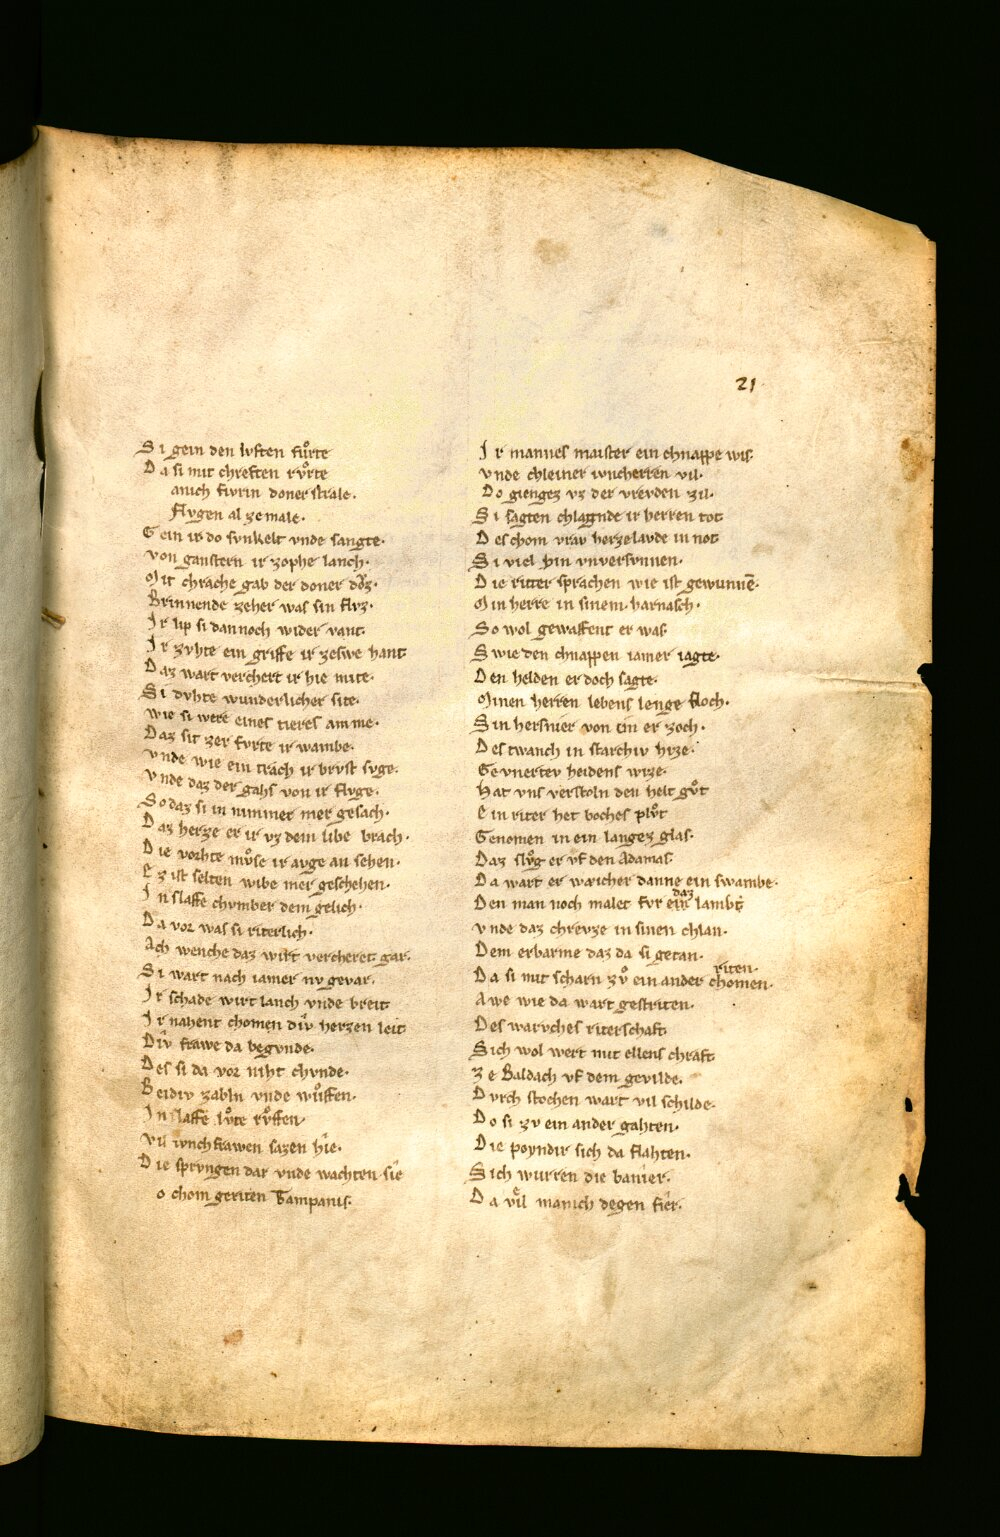 21
Si gein den lvften fuͦrte
Da si mit chreften rvͦrte
anich fivrin doner strale.
Flvgen al ze male.
Gein ir do svnkelt vnde sangte.
von ganstern ir zophe lanch.
Mit chrache gab der doner doͮz.
Brinnende zeher was sin flvz.
Ir lip si dannoch wider vant.
Ir zvhte ein griffe ir zeswe hant
Daz wart verchert ir hie mite.
Si dvhte wunderlicher site.
wie si were eines tieres amme.
Daz sit zer fvrte ir wambe.
vnde wie ein trach ir brvst svge.
vnde daz der gahs von ir flvge.
So daz si in nimmer mer gesach.
Daz herze er ir vz dem libe brach.
Die vorhte mvͦse ir avge an sehen.
Ez ist selten wibe mer geschehen.
In slaffe chvmber dem gelich.
Da vor was si riterlich.
Ach wenche daz wirt vercheret gar.
Si wart nach iamer nv gevar.
Ir schade wirt lanch vnde breit
Ir nahent chomen div̂ herzen leit
Div̂ frawe da begvnde.
Des si da vor niht chvnde.
Beidiv zabln vnde wuͦffen.
In slaffe lvͦte rvͦffen.
vil ivnchfrawen sazen hîe.
Die sprvngen dar vnde wachten sîe
o chom geriten Tampanis.
Ir mannes maister ein chnappe wis.
vnde chleiner ivncherren vil.
Do giengez vz der vrevden zil.
Si sagten chlagnde ir herren tot
Des chom vraw herzelavde in not
Si viel hin vnversvnnen.
Die ritter sprachen wie ist gewunnē.
Min herre in sinem harnasch.
So wol gewaffent er was.
Swie den chnappen iamer iagte.
Den helden er doch sagte.
Minen herren lebens lenge floch.
Sin hersnier von im er zoch.
Des twanch in starchiv hize.
Gevnerter heidens wize.
Hat vns verstoln den helt guͦt
Ein riter het boches plvͦt
Genomen in ein langez glas.
Daz slvͦg er vf den Adamas
Da wart er waicher danne ein swambe.
Den man noch malet fvr ein daz lambt
vnde daz chrevze in sinen chlan.
Dem erbarme daz da si getan.
Da si mit scharn zvͦ ein ander chomen. riten.
Awe wie da wart gestriten.
Des warvches riterschaft
Sich wol wert mit ellens chraft
Ze Baldach vf dem gevilde.
Dvrch stochen wart vil schilde.
Do si zv ein ander gahten.
Die poyndir sich da flahten.
Sich wurren die banîer.
Da vîel manich degen fîer.